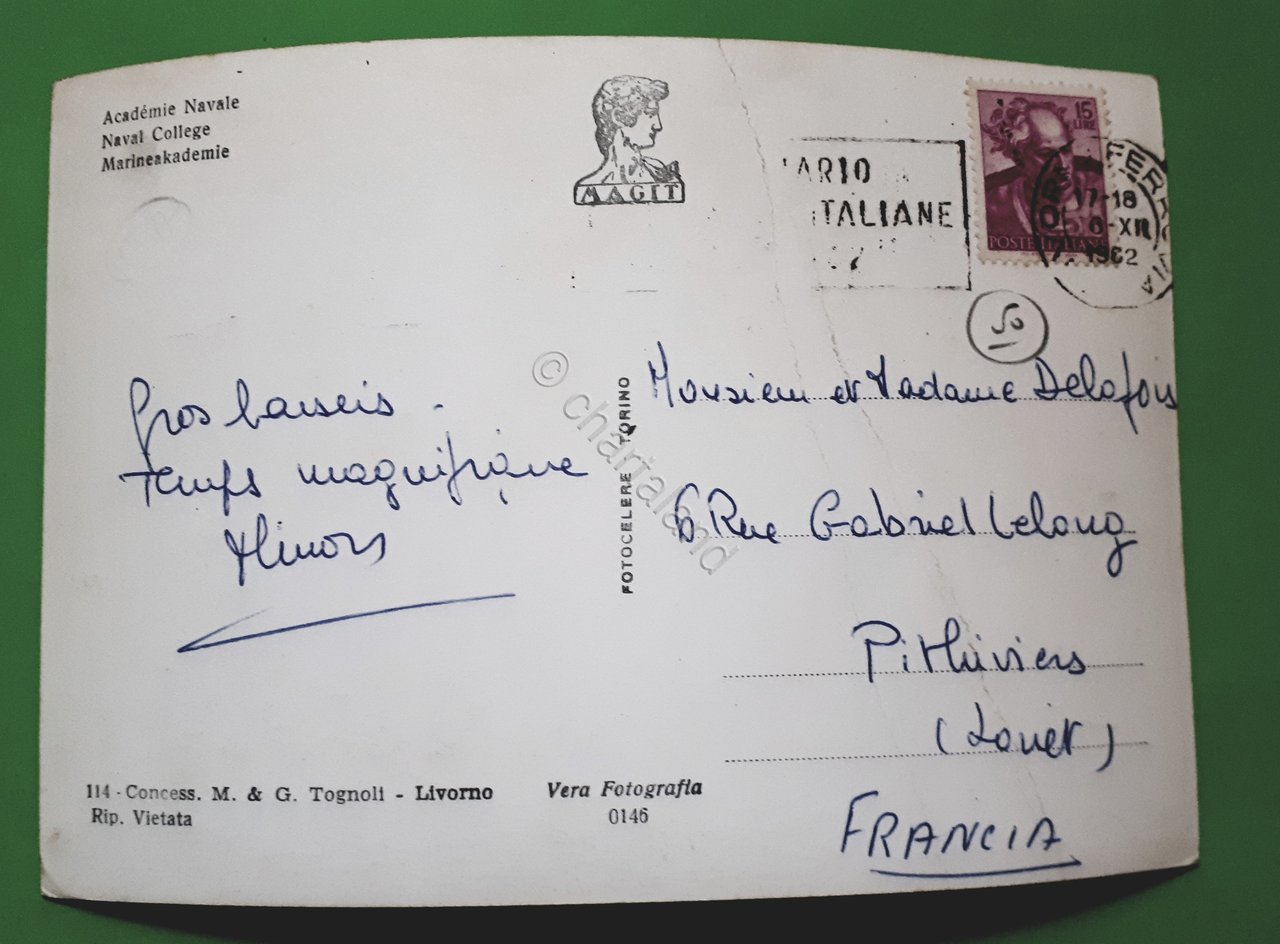 Académie Navale
Naval College
Marineakademie
MAGIT
ARIO
ITALIANE
15
LIRE
POSTE ITALIANE
17-18
6-XII
1962
50
© chartaland
Gros baisers.
Temps magnifique
FOTOCELERE TORINO
Monsieur et Madame Delafois
6 Rue Gabriel Lelong
Pithiviers
(Loiret)
FRANCIA
114 - Concess. M. & G. Tognoli - Livorno
Rip. Vietata
Vera Fotografia
0146